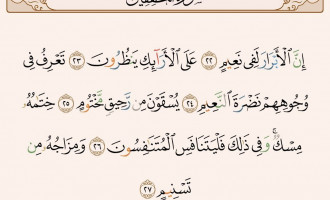 سورة المطففين
إِنَّ ٱلْأَبْرَارَ لَفِى نَعِيمٍ ٢٢ عَلَى ٱلْأَرَآئِكِ يَنظُرُونَ ٢٣ تَعْرِفُ فِى
وُجُوهِهِمْ نَضْرَةَ ٱلنَّعِيمِ ٢٤ يُسْقَوْنَ مِن رَّحِيقٍ مَّخْتُومٍ ٢٥ خِتَٰمُهُۥ
مِسْكٌ ۚ وَفِى ذَٰلِكَ فَلْيَتَنَافَسِ ٱلْمُتَنَٰفِسُونَ ٢٦ وَمِزَاجُهُۥ مِن
تَسْنِيمٍ ٢٧